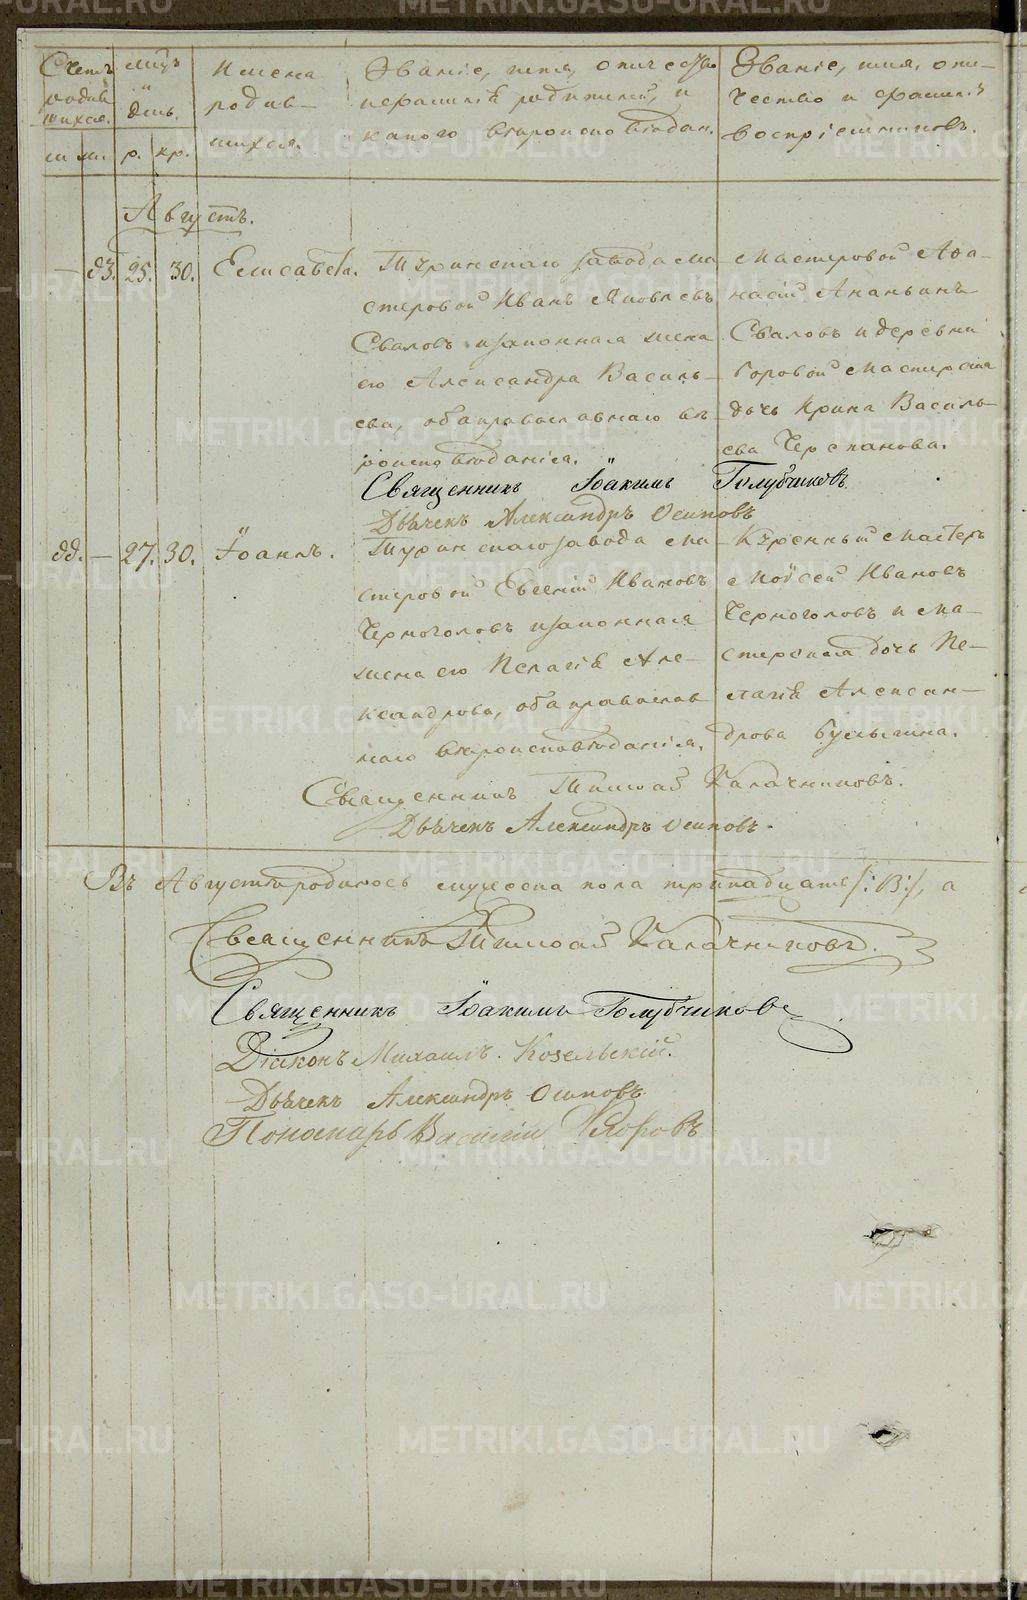 Счетъ родив шихся.
м. ж.
мцъ и день.
р. кр.
Имена родив— шихся.
Званіе, имя, отчество и фамилія родителей, и какого вѣроисповѣдан.
Званіе, имя, оте— чество и фамилія воспріемниковъ.
Августъ.
— 93. 25. 30. Елисавета.
Туринскаго завода ма
стеровой Иванъ Яковлевъ
Сваловъ и законная жена
его Александра Василь—
ева, оба православнаго вѣ
роисповѣданія.
мастеровой Аѳа—
насій Ананьинъ
Сваловъ и деревни
Боровой мастерская
дочь Ирина Василь—
ева Черепанова.
Священникъ Іоакимъ Голубчиковъ
Дьячекъ Александръ Осиповъ
99. — 27. 30. Іоаннъ.
Туринскаго завода ма—
стеровой Евгеній Ивановъ
Черноголовъ и законная
жена его Пелагія Але—
ксандрова, оба православ
наго вѣроисповѣданія.
Куренный мастеръ
Моѵсей Ивановъ
Черноголовъ и ма—
стерская дочь Пе—
лагія Алексан—
дрова Булыгина.
Священникъ Тимоѳей Калачниковъ.
Дьячекъ Александръ Осиповъ.
Въ Августѣ родилось мужеска пола тринадцать /:13:/, а
Священникъ Тимоѳей Калачниковъ.
Священникъ Іоакимъ Голубчиковъ
Діаконъ Михаилъ Козельскій.
Дьячекъ Александръ Осиповъ
Пономарь Василій
METRIKI.GASO-URAL.RU